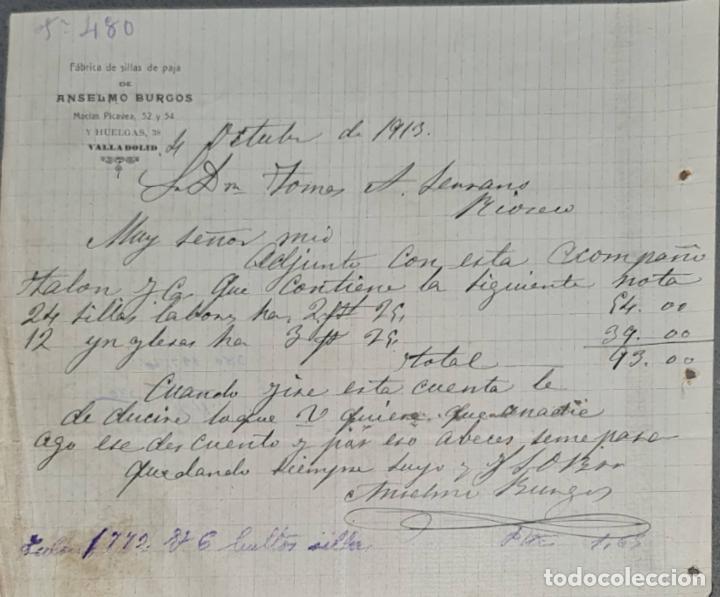 Nº 480
Fábrica de sillas de paja
DE
ANSELMO BURGOS
Macias Picavea, 52 y 54
Y HUELGAS, 38
VALLADOLID
4 Octubre de 1913.
Sr Dn Tomas A. Serrano
Rioseco
Muy señor mio
adjunto con esta acompaño
talon y que contiene la siguiente nota
24 sillas labor ha 2 pts 25, 54.00
12 ynglesas ha 3 pts 25, 39.00
total 93.00
Cuando jire esta cuenta le
de ducire lo que V quiere que anadie
ago ese descuento y por eso aveces seme pasa
quedando siempre suyo y
Anselmo Burgos
Talon 1772 6 bultos sillas 1,65
todocoleccion
todocoleccion.net